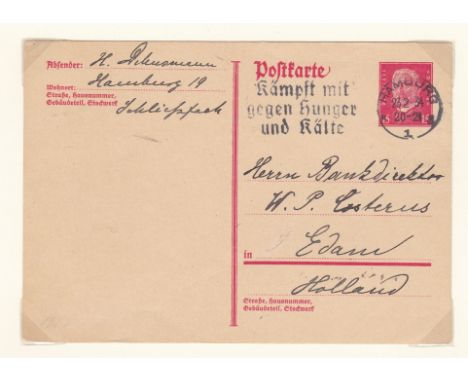 Absender: H.
Wohnort: Hamburg 19
Straße, Hausnummer,
Gebäudeteil, Stockwerk
Schließfach
Postkarte
Kämpft mit
gegen Hunger
und Kälte
HAMBURG
20-21
1
Herrn Bankdirektor
W. P. Costerus
in Edam
Holland
Straße, Hausnummer,
Gebäudeteil, Stockwerk